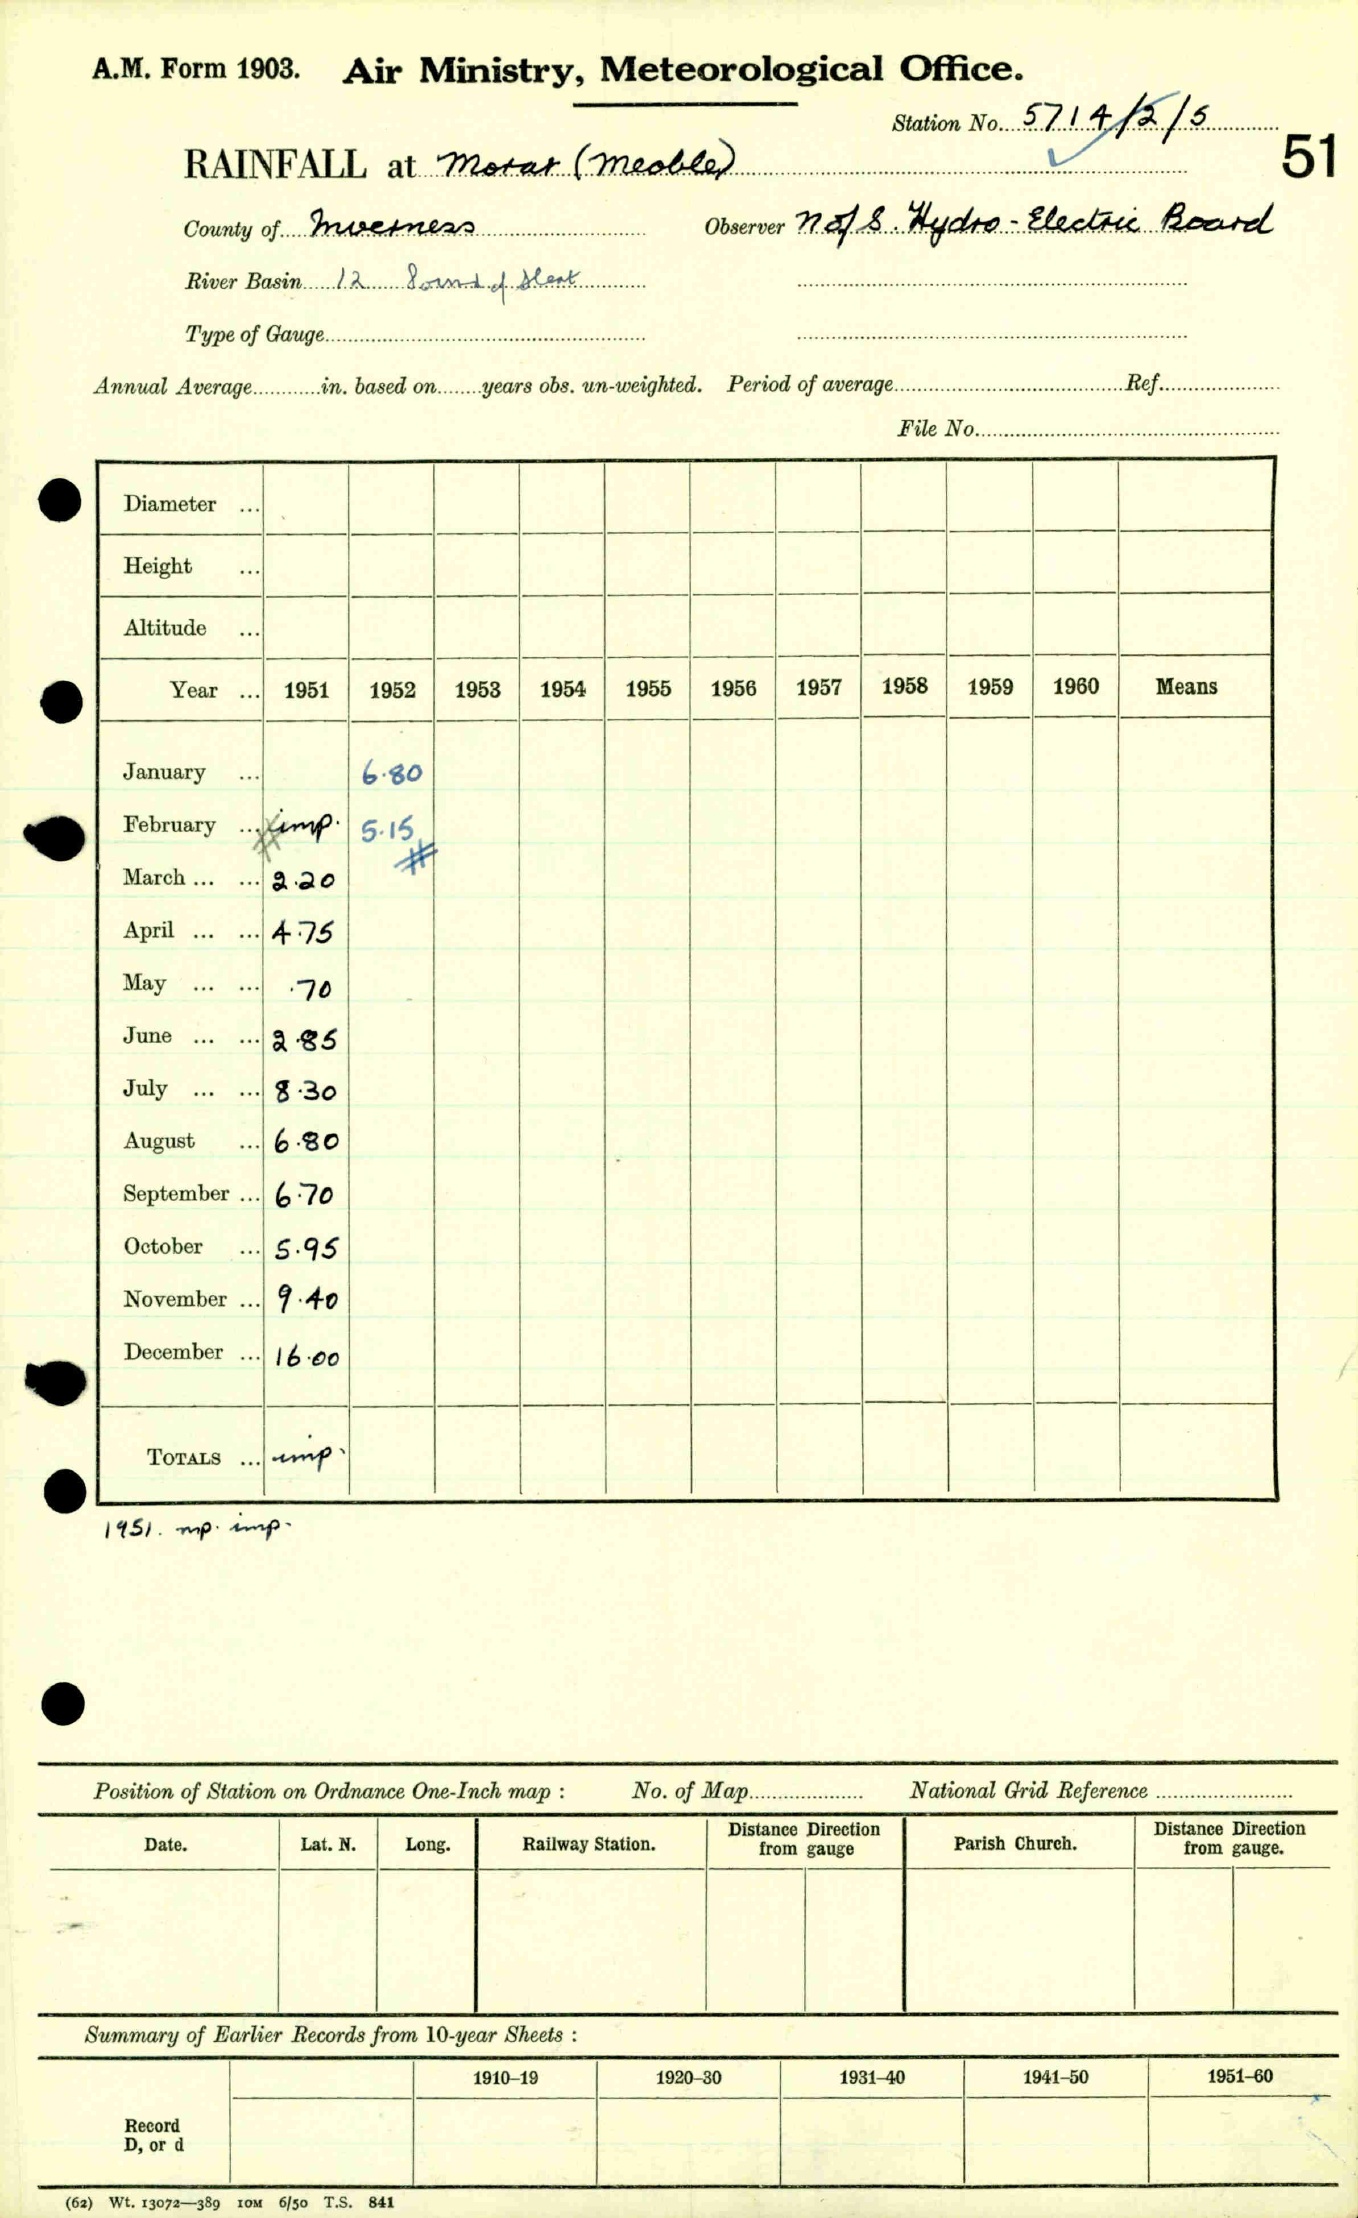 A.M. Form 1903. Air Ministry, Meteorological Office.
Station No. 5714/2/5
51
RAINFALL at Morar (Meoble)
County of Inverness Observer N of S. Hydro-Electric Board
River Basin 12 Sound of Sleat
Type of Gauge
Annual Average in. based on years obs. un-weighted. Period of average Ref.
File No.
Diameter ...
Height ...
Altitude ...
Year ... 1951 1952 1953 1954 1955 1956 1957 1958 1959 1960 Means
January ... 6.80
February ... imp. 5.15
#
March ... ... 2.20
April ... ... 4.75
May ... ... .70
June ... ... 2.85
July ... ... 8.30
August ... 6.80
September ... 6.70
October ... 5.95
November ... 9.40
December ... 16.00
TOTALS ... imp.
1951. mp. imp.
Position of Station on Ordnance One-Inch map : No. of Map National Grid Reference
Date. Lat. N. Long. Railway Station. Distance Direction from gauge Parish Church. Distance Direction from gauge.
Summary of Earlier Records from 10-year Sheets :
1910–19 1920–30 1931–40 1941–50 1951–60
Record
D, or d
(62) Wt. 13072—389 10M 6/50 T.S. 841